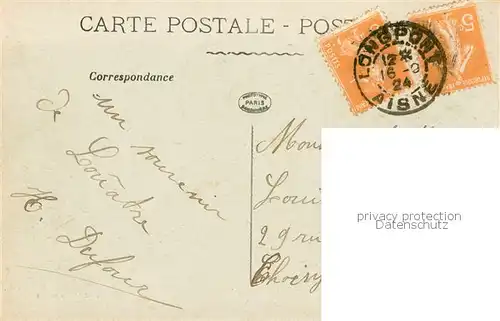 CARTE POSTALE - POST
Correspondance
PARIS
LONGPONT
12 *
16 -9
24
AISNE
5c
un souvenir
de
Louâtre
H. Dufour
Mon
Loui
29 rue
Choisy
privacy protection
Datenschutz